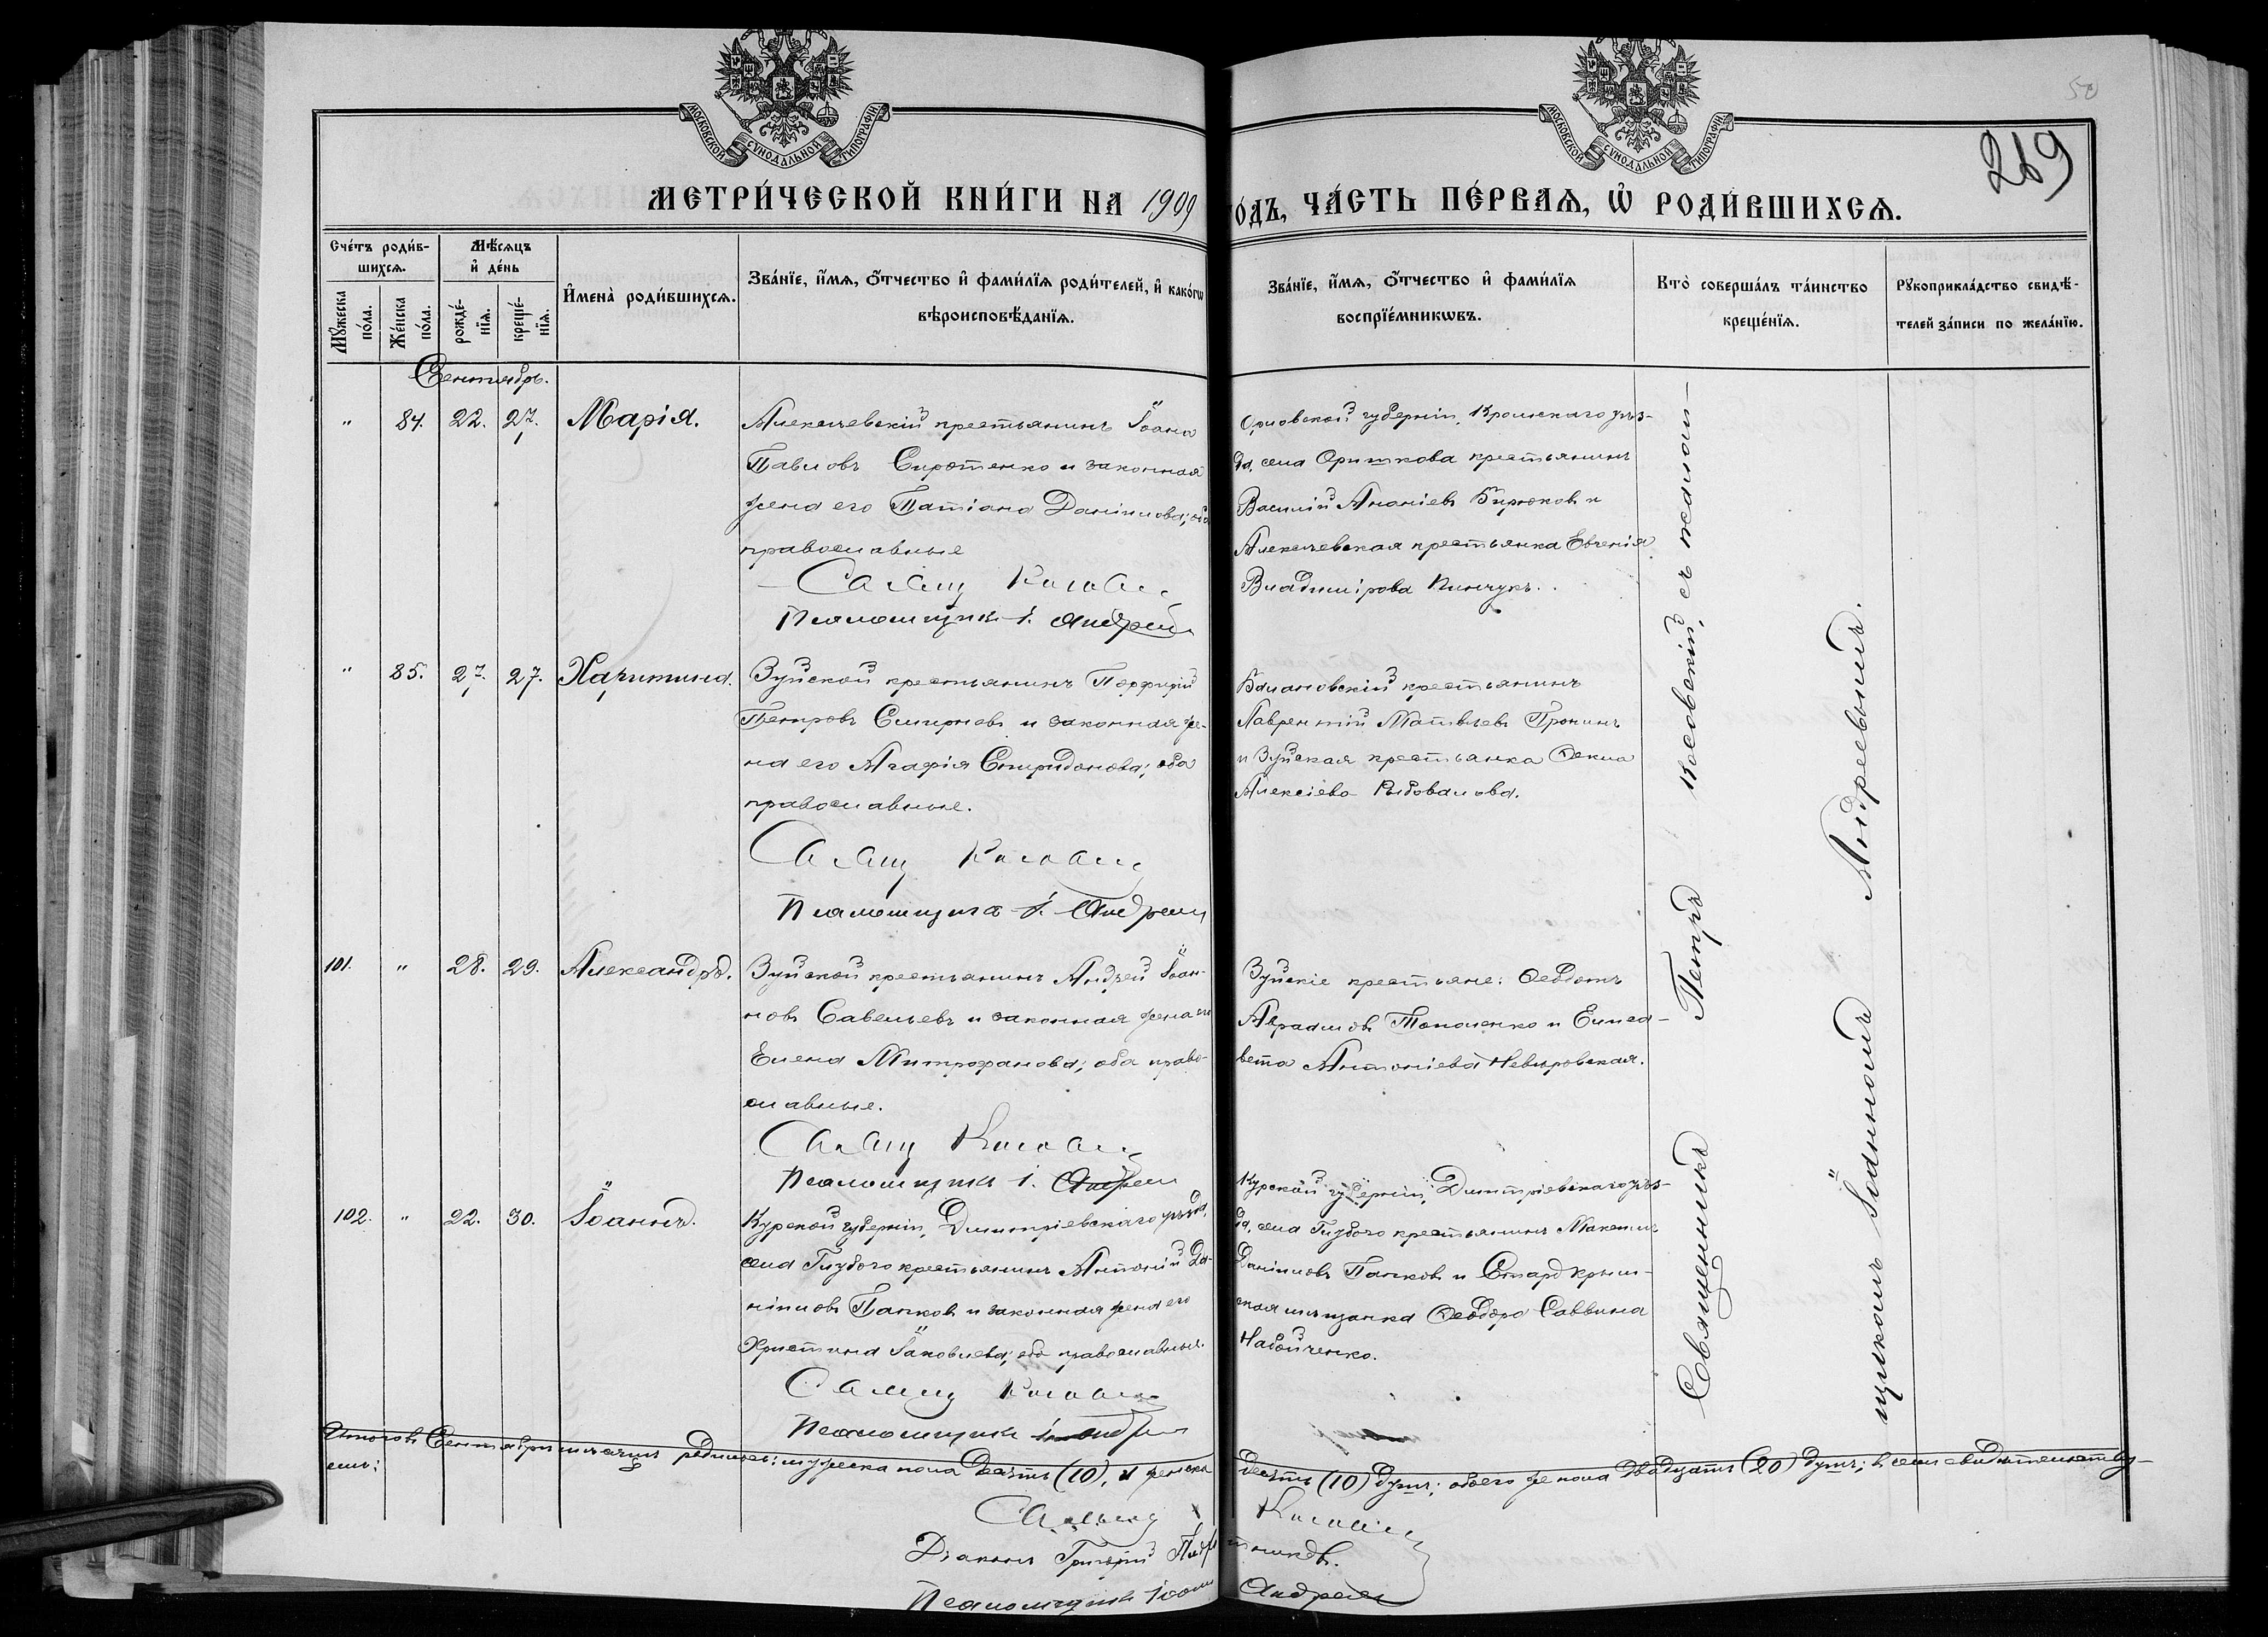 МОСКОВСКОЙ СѴНОДАЛЬНОЙ ТИПОГРАФІИ
МОСКОВСКОЙ СѴНОДАЛЬНОЙ ТИПОГРАФІИ
50
269
МЕТРИ́ЧЕСКОЙ КНИ́ГИ НА 1909 ГО́ДЪ, ЧА́СТЬ ПЕ́РВАѦ, Ѡ҆ РОДИ́ВШИХСѦ.
Сче́тъ роди́в-
шихсѧ.
Мꙋ́жеска по́ла.
Же́нска по́ла.
Мѣ́сѧцъ
и҆ де́нь
рожде́-нїѧ.
креще́-нїѧ.
И҆мена̀ роди́вшихсѧ.
Зва́нїе, и҆́мѧ, ѻ҆́тчество и҆ фами́лїѧ роди́телей, и҆ како́гѡ
вѣроисповѣ́данїѧ.
Зва́нїе, и҆́мѧ, ѻ҆́тчество и҆ фами́лїѧ
воспрїе́мникѡвъ.
Кто̀ соверша́лъ та́инство
креще́нїѧ.
Рꙋкоприкла́дство свидѣ́-
телей за́писи по жела́нїю.
Сентябрь.
" 84. 22. 27. Марія.
Алексѣевскій крестьянинъ Іоаннъ
Павловъ Сиротенко и законная
жена его Татіана Даніилова; оба
православные
Псаломщикъ І. Андрее
Орловской губерніи, Кромскаго уѣз-
да, села крестьянинъ
Василій Ананіевъ Бирюковъ и
Алексѣевская крестьянка Евгенія
Владимірова Пинчукъ.
" 85. 27. 27. Харитина.
Зуйской крестьянинъ Порфирій
Петровъ Смирновъ и законная же-
на его Агафія Спиридонова; оба
православные.
Псаломщикъ І. Андреев
Балановскій крестьянинъ
Лаврентій Матвѣевъ Пронинъ
и Зуйская крестьянка Ѳекла
Алексіева Рыбовалова.
101. " 28. 29. Александръ.
Зуйской крестьянинъ Андрей Іоан-
новъ Савельевъ и законная жена его
Елена Митрофанова; оба право-
славные.
Псаломщикъ І. Андреев
Зуйскіе крестьяне: Ѳеодотъ
Авраамовъ Тополенко и Елиса-
вета Антоніева Невѣровская.
102. " 22. 30. Іоаннъ.
Курской губерніи, Димитріевскаго уѣзда,
села Глубого крестьянинъ Антоній Да-
ніиловъ Панковъ и законная жена его
Христина Іаковлева; оба православные.
Псаломщикъ І. Андреев
Курской губерніи, Димитріевскаго уѣз-
да, села Глубого крестьянинъ Максимъ
Даніиловъ Панковъ и Старокрым-
ская мѣщанка Ѳеодора Саввина
Набойченко.
Священникъ Петръ Косовскій, съ псалом-
щикомъ Іоанномъ Андреевымъ.
Итого въ Сентябрѣ мѣсяцѣ родилось: мужеска пола десять (10), и женска десять (10) душъ; обоего же пола двадцать (20) душъ; въ семъ свидѣтельству-
емъ:
Діаконъ Григорій
Псаломщикъ Іоаннъ Андреевъ